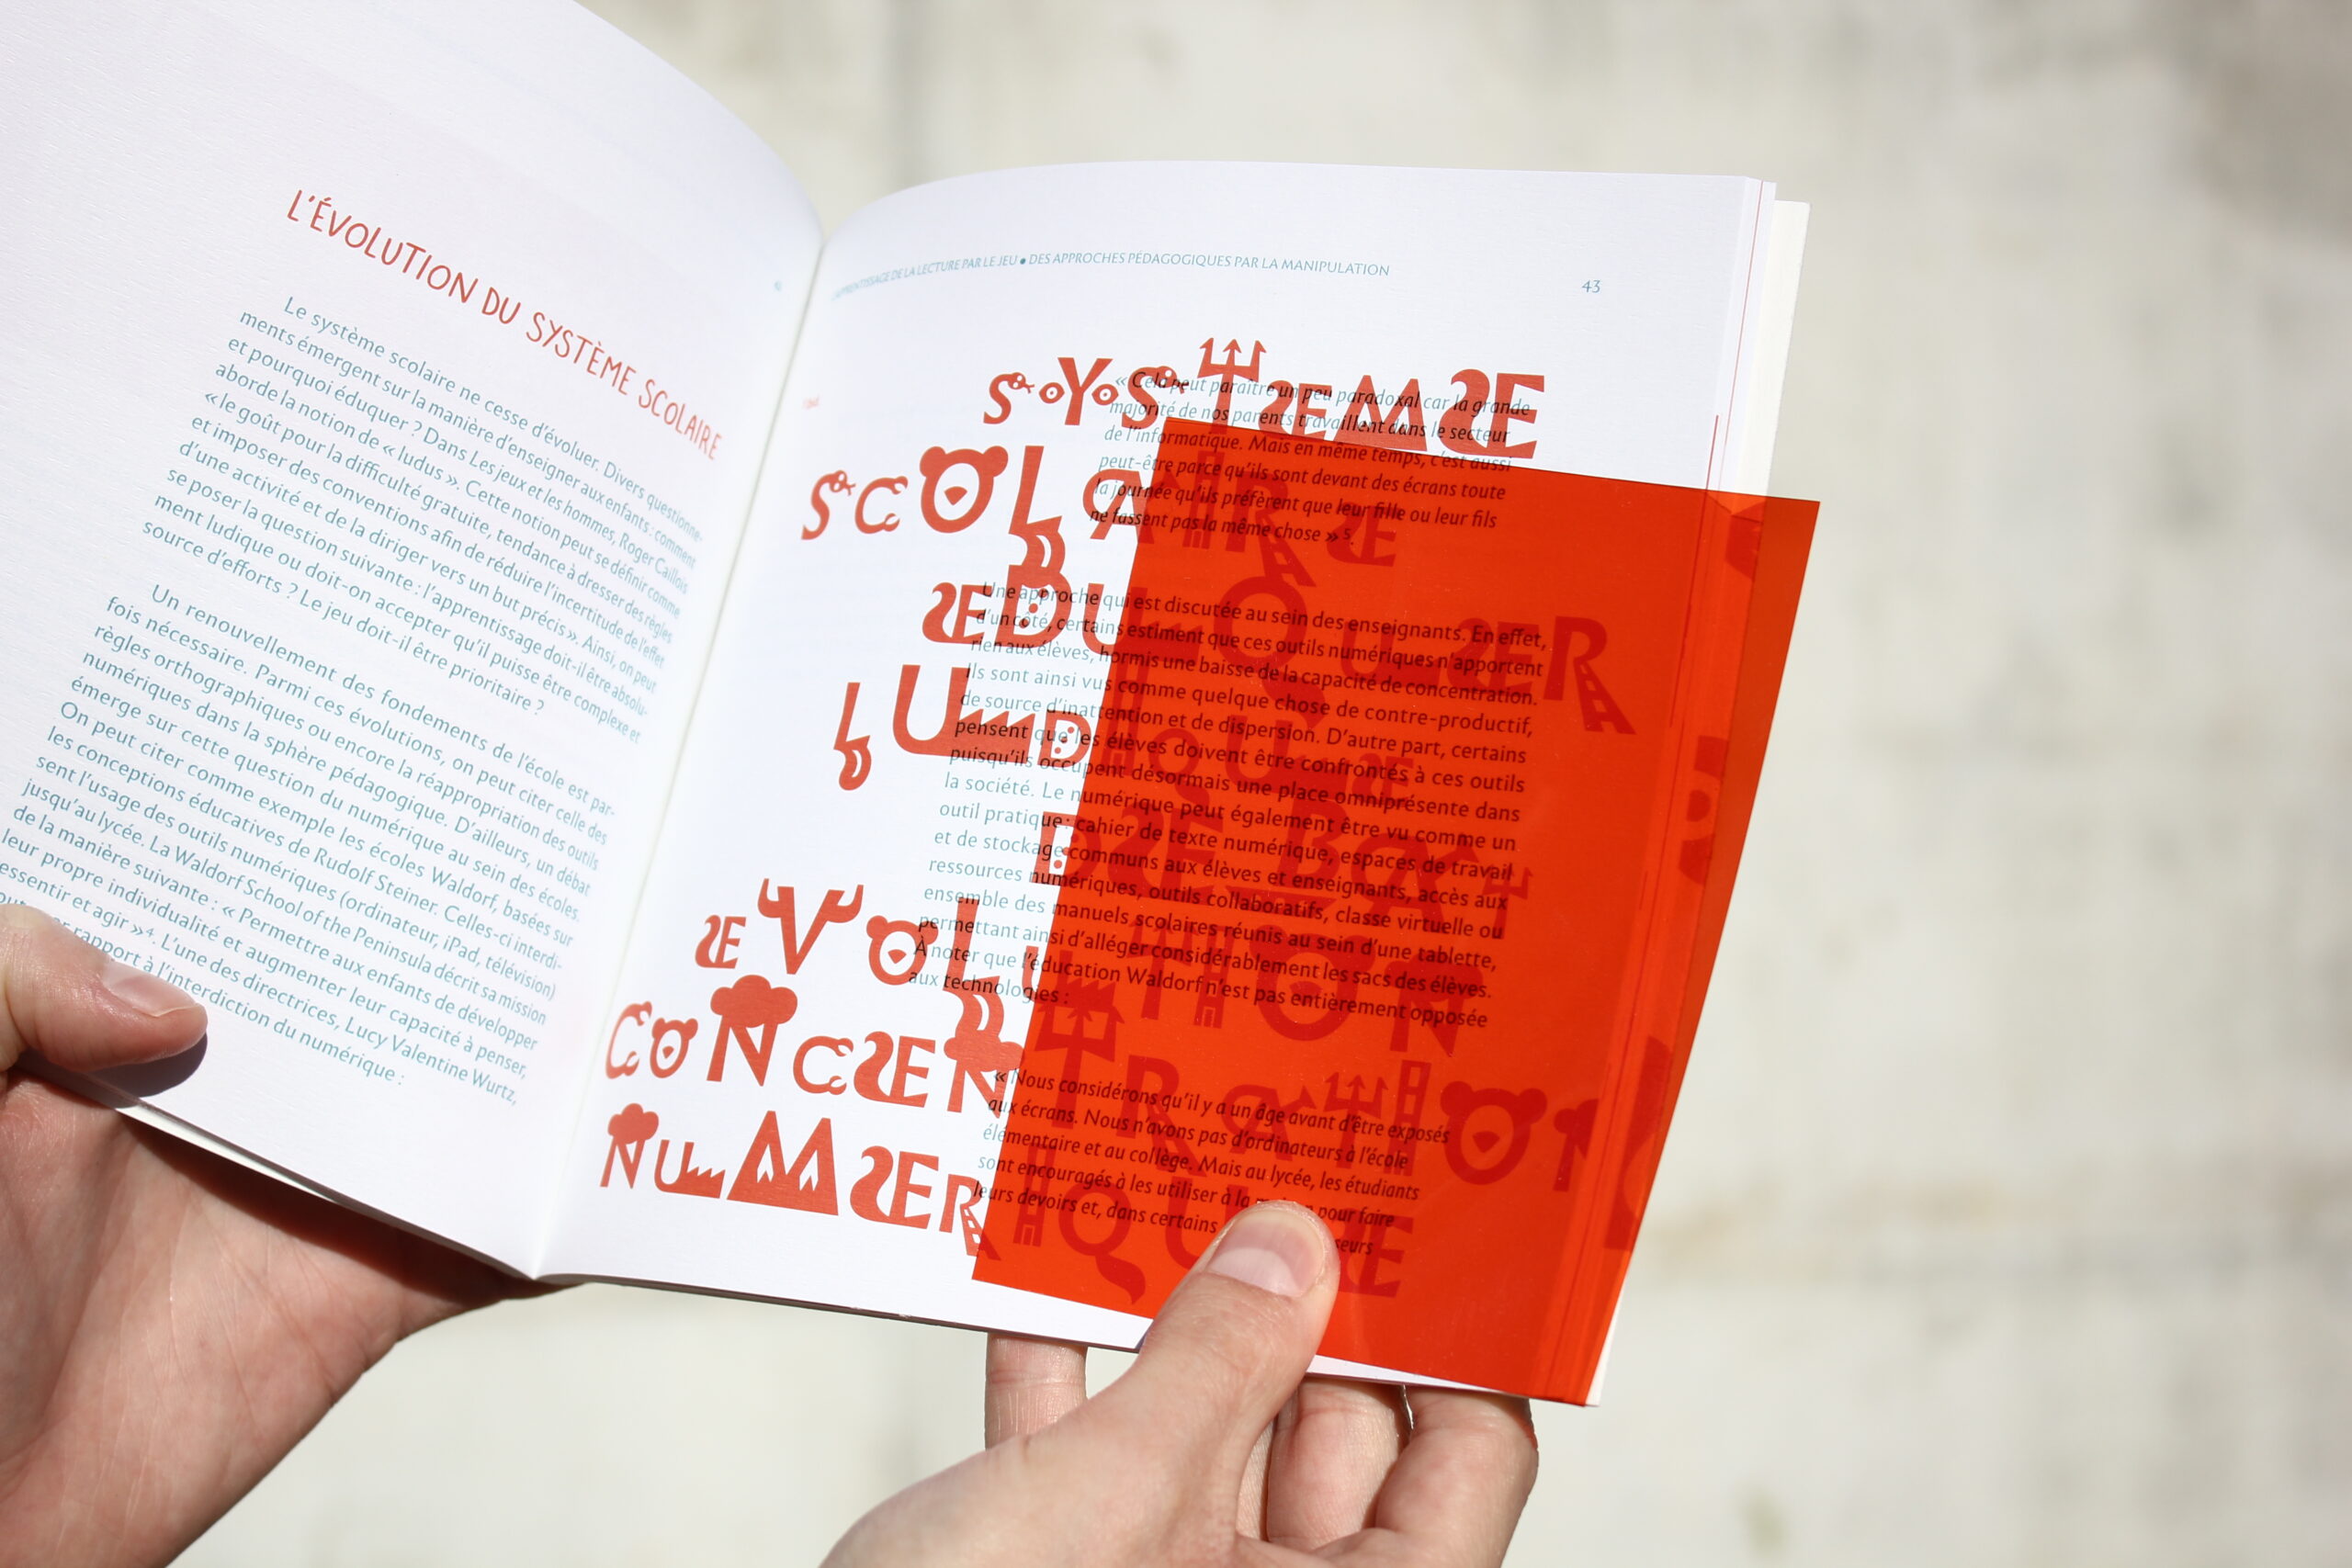 L'ÉVOLUTION DU SYSTÈME SCOLAIRE
Le système scolaire ne cesse d'évoluer. Divers questionne-
ments émergent sur la manière d'enseigner aux enfants : comment
et pourquoi éduquer ? Dans Les jeux et les hommes, Roger Caillois
aborde la notion de « ludus ». Cette notion peut se définir comme
« le goût pour la difficulté gratuite, tendance à dresser des règles
et imposer des conventions afin de réduire l'incertitude de l'effet
d'une activité et de la diriger vers un but précis ». Ainsi, on peut
se poser la question suivante : l'apprentissage doit-il être absolu-
ment ludique ou doit-on accepter qu'il puisse être complexe et
source d'efforts ? Le jeu doit-il être prioritaire ?
Un renouvellement des fondements de l'école est par-
fois nécessaire. Parmi ces évolutions, on peut citer celle des
règles orthographiques ou encore la réappropriation des outils
numériques dans la sphère pédagogique. D'ailleurs, un débat
émerge sur cette question du numérique au sein des écoles.
On peut citer comme exemple les écoles Waldorf, basées sur
les conceptions éducatives de Rudolf Steiner. Celles-ci interdi-
sent l'usage des outils numériques (ordinateur, iPad, télévision)
jusqu'au lycée. La Waldorf School of the Peninsula décrit sa mission
de la manière suivante : « Permettre aux enfants de développer
leur propre individualité et augmenter leur capacité à penser,
essentir et agir »⁴. L'une des directrices, Lucy Valentine Wurtz,
rapport à l'interdiction du numérique :
DE LA LECTURE PAR LE JEU • DES APPROCHES PÉDAGOGIQUES PAR LA MANIPULATION
43
SYSTEME
SCOLAIRE
EDUQUER
LUDIQUE
DEBAT
EVOLUTION
CONCENTRATION
NUMERIQUE
« Cela peut paraître un peu paradoxal car la grande
majorité de nos parents travaillent dans le secteur
de l'informatique. Mais en même temps, c'est aussi
peut-être parce qu'ils sont devant des écrans toute
la journée qu'ils préfèrent que leur fille ou leur fils
ne fassent pas la même chose »⁵.
Une approche qui est discutée au sein des enseignants. En effet,
d'un côté, certains estiment que ces outils numériques n'apportent
rien aux élèves, hormis une baisse de la capacité de concentration.
Ils sont ainsi vus comme quelque chose de contre-productif,
de source d'inattention et de dispersion. D'autre part, certains
pensent que les élèves doivent être confrontés à ces outils
puisqu'ils occupent désormais une place omniprésente dans
la société. Le numérique peut également être vu comme un
outil pratique : cahier de texte numérique, espaces de travail
et de stockage communs aux élèves et enseignants, accès aux
ressources numériques, outils collaboratifs, classe virtuelle ou
ensemble des manuels scolaires réunis au sein d'une tablette,
permettant ainsi d'alléger considérablement les sacs des élèves.
À noter que l'éducation Waldorf n'est pas entièrement opposée
aux technologies :
« Nous considérons qu'il y a un âge avant d'être exposés
aux écrans. Nous n'avons pas d'ordinateurs à l'école
élémentaire et au collège. Mais au lycée, les étudiants
sont encouragés à les utiliser à la pour faire
leurs devoirs et, dans certains